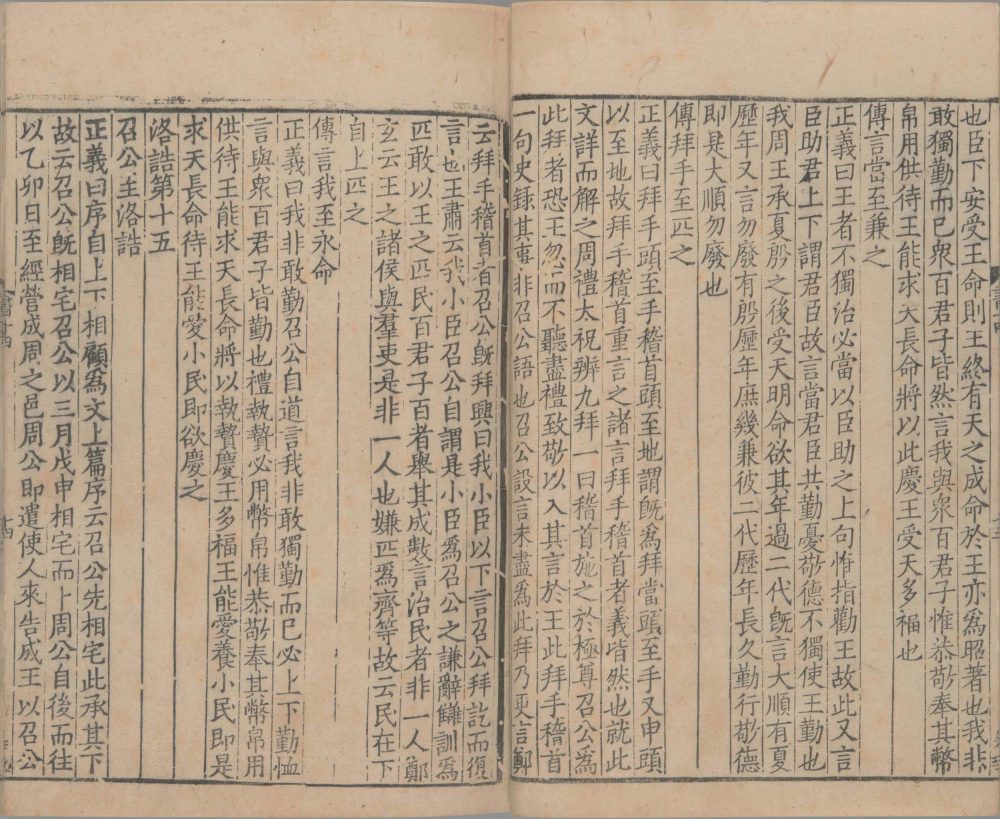 也臣下安受王命則王終有天之成命於王亦爲昭著也我非
敢獨勤而已衆百君子皆然言我與衆百君子惟恭敬奉其幣
帛用供待王能求天長命將以此慶王受天多福也
傳言當至兼之
正義曰王者不獨治必當以臣助之上句惟指勸王故此又言
臣助君上下謂君臣故言當君臣共勤憂敬德不獨使王勤也
我周王承夏殷之後受天明命欲其年過二代旣言大順有夏
歷年又言勿廢有殷歷年庶幾兼彼二代歷年長久勤行敬德
即是大順勿廢也
傳拜手至匹之
正義曰拜手頭至手稽首頭至地謂旣爲拜當頭至手又申頭
以至地故拜手稽首重言之諸言拜手稽首者義皆然也就此
文詳而解之周禮太祝辨九拜一曰稽首施之於極尊召公爲
此拜者恐王忽而不聽盡禮致敬以入其言於王此拜手稽首
一句史錄其事非召公語也召公設言未盡爲此拜乃更言鄭
云拜手稽首者召公旣拜興曰我小臣以下言召公拜訖而復
言也王肅云我小臣召公自謂是小臣爲召公之謙辭讎訓爲
匹敢以王之匹民百君子百者舉其成數言治民者非一人鄭
玄云王之諸侯與羣吏是非一人也嫌匹爲齊等故云民在下
自上匹之
傳言我至永命
正義曰我非敢勤召公自道言我非敢獨勤而已必上下勤恤
言與衆百君子皆勤也禮執贄必用幣帛惟恭敬奉其幣帛用
供待王能求天長命將以執贄慶王多福王能愛養小民即是
求天長命待王能愛小民即欲慶之
洛誥第十五
召公至洛誥
正義曰序自上下相顧爲文上篇序云召公先相宅此承其下
故云召公旣相宅召公以三月戊申相宅而卜周公自後而往
以乙卯日至經營成周之邑周公即遣使人來告成王以召公